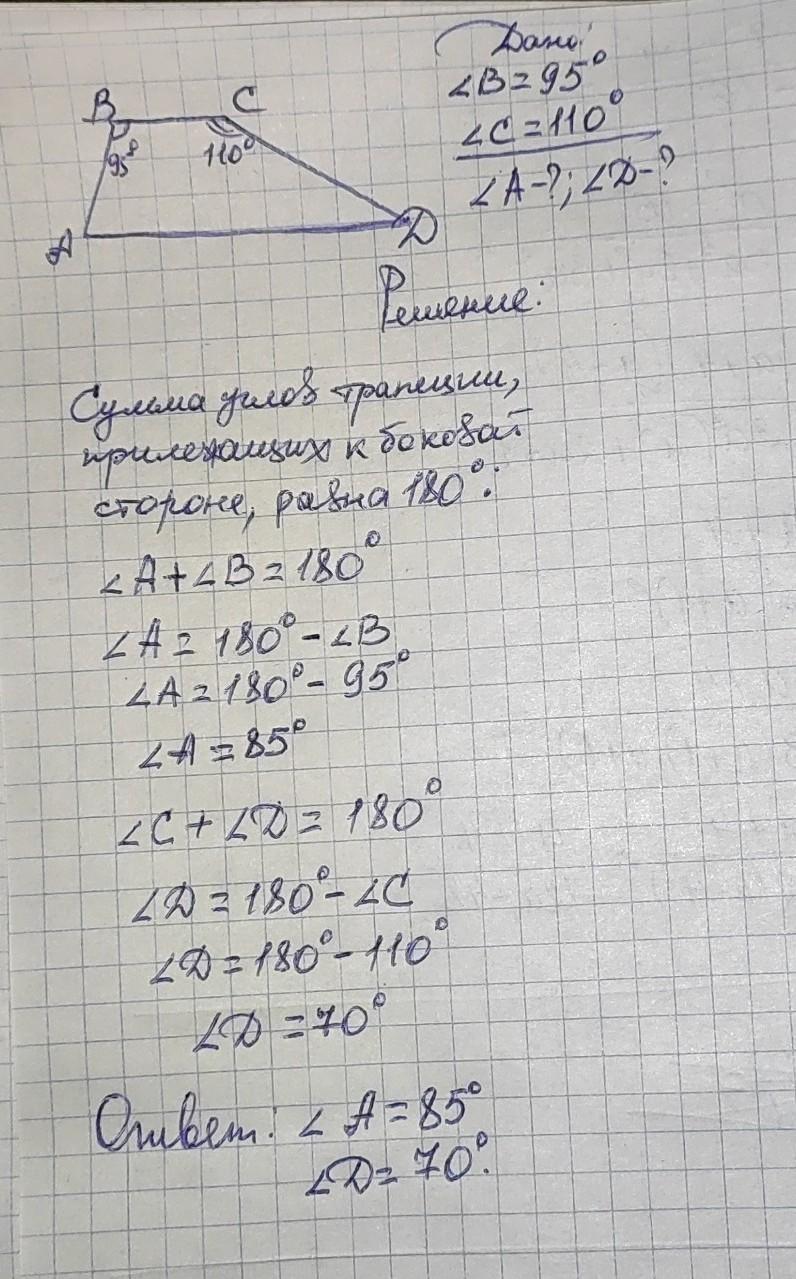 Дано:
∠B=95°
∠C=110°
∠A-?; ∠D-?
B C
95° 110°
A D
Решение:
Сумма углов трапеции,
прилежащих к боковой
стороне, равна 180°:
∠A+∠B=180°
∠A=180°-∠B
∠A=180°-95°
∠A=85°
∠C+∠D=180°
∠D=180°-∠C
∠D=180°-110°
∠D=70°
Ответ: ∠A=85°
∠D=70°.